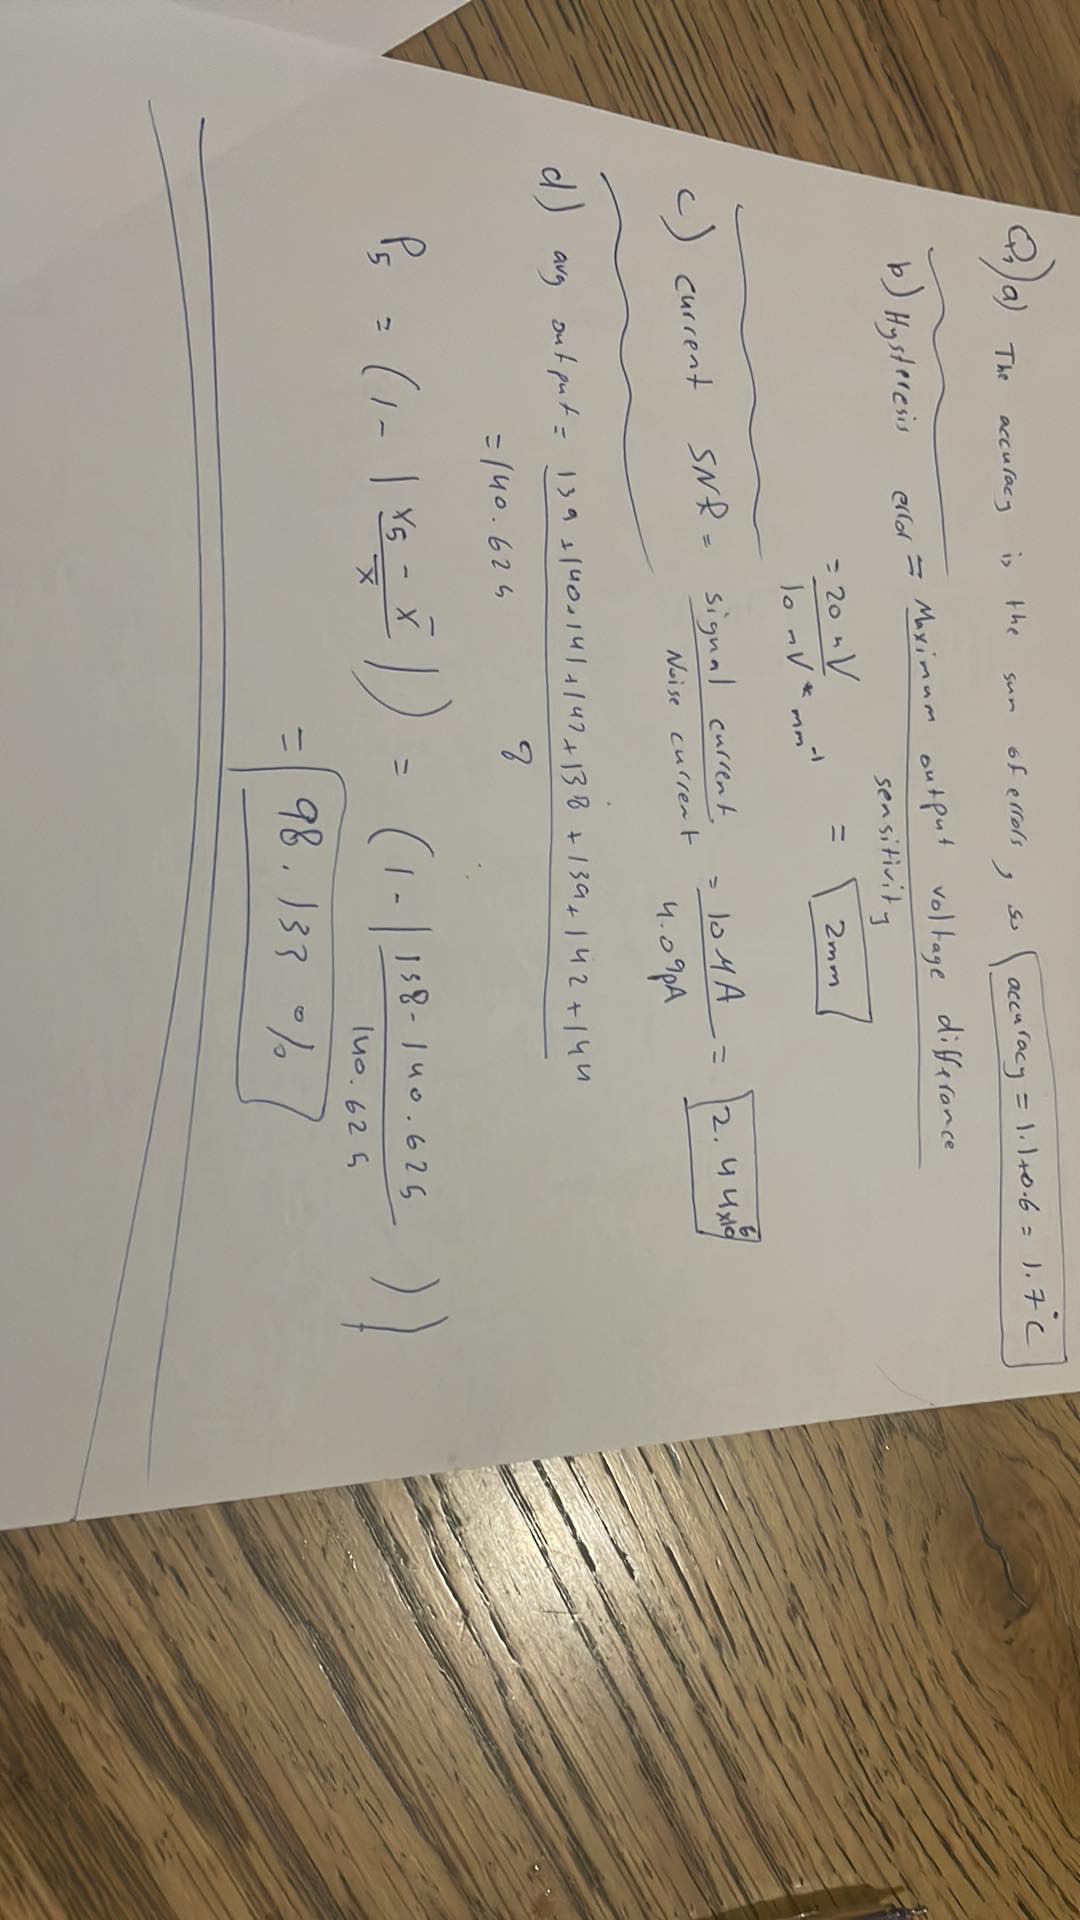 Q1) a) The accuracy is the sum of errors, so accuracy = 1.1+0.6 = 1.7°C
b) Hysteresis error = Maximum output voltage differance
sensitivity
= 20 nV / 10 nV * mm⁻¹ = 2mm
c) current SNR = signal current / Noise current = 10 µA / 4.09pA = 2.44x10⁶
d) avg output = 139+140+141+142+138+139+142+144
8
= 140.625
P5 = (1 - | x5 - x̄ / x̄ |) = (1 - | 138 - 140.625 / 140.625 ))
= 98.133 %